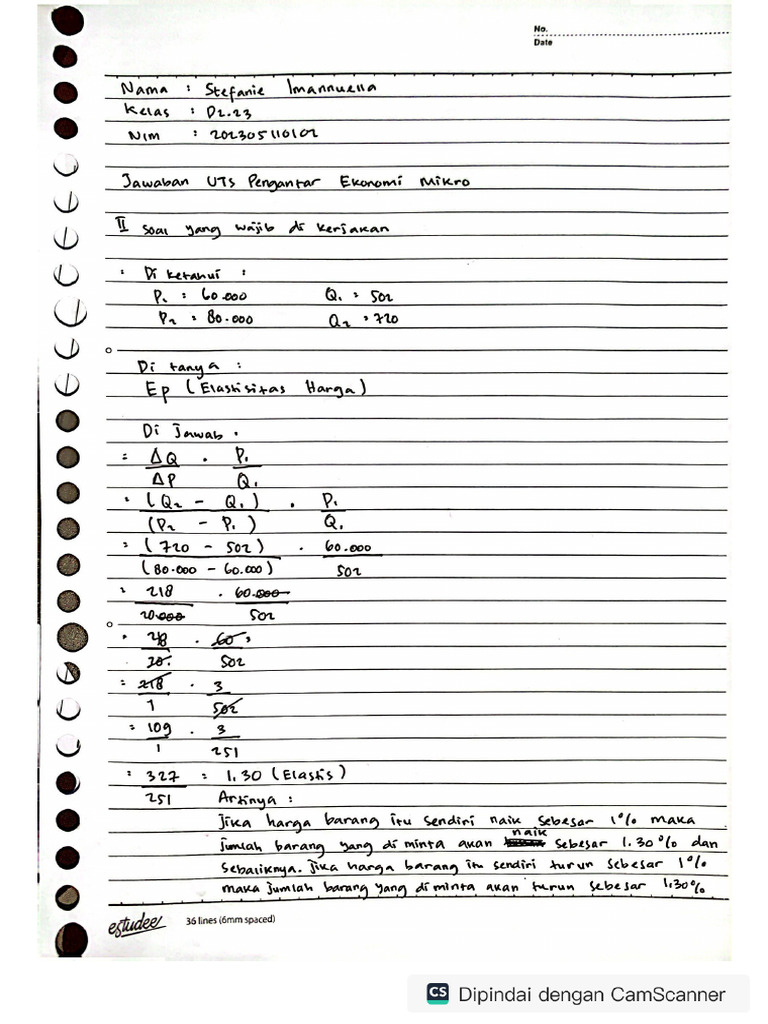 No.
Date
Nama : Stefanie Imannuella
Kelas : D2.23
Nim : 202305110102
Jawaban UTS Pengantar Ekonomi Mikro
II Soal yang wajib di kerjakan
: Di ketahui :
P₁ : 60.000 Q₁ : 502
P₂ : 80.000 Q₂ : 720
Di tanya :
Ep (Elastisitas Harga)
Di Jawab.
= ΔQ . P₁
ΔP Q₁
= (Q₂ - Q₁) . P₁
(P₂ - P₁) Q₁
= (720 - 502) . 60.000
(80.000 - 60.000) 502
= 218 . 60.000
20.000 502
= 218 . 60 3
20. 502
= 218 . 3
1 502
= 109 . 3
1 251
= 327 = 1,30 (Elastis)
251 Artinya :
Jika harga barang itu sendiri naik sebesar 1% maka
jumlah barang yang di minta akan naik sebesar 1.30% dan
sebaliknya. Jika harga barang itu sendiri turun sebesar 1%
maka jumlah barang yang di minta akan turun sebesar 1,30%
estudee 36 lines (6mm spaced)
CS Dipindai dengan CamScanner